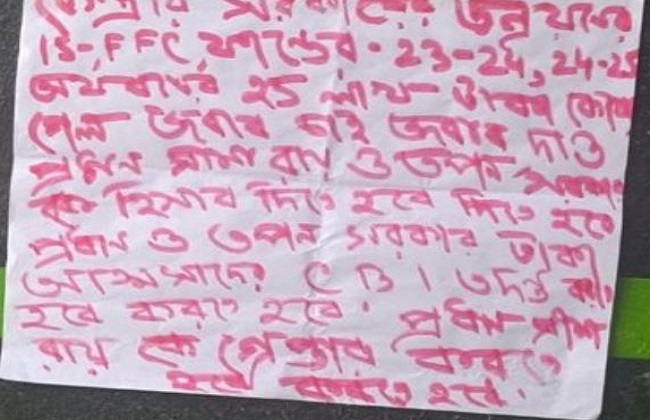 কেন্দ্রীয় সরকারের উন্নয়নের
15-FFC ফান্ডের - 23-24, 24-25
অর্থবর্ষের ২৫ লাখ টাকা কোথায়
গেল জবাব চাই জবাব দাও
প্রধান রায় ও তপন সরকার
কে হিসাব দিতে হবে দিতে হবে
প্রধান ও তপন সরকার টাকা
আত্মসাদের C B I তদন্ত
হবে করতে হবে। প্রধান
রায় কে গ্রেপ্তার করতে
হবে করতে হবে.